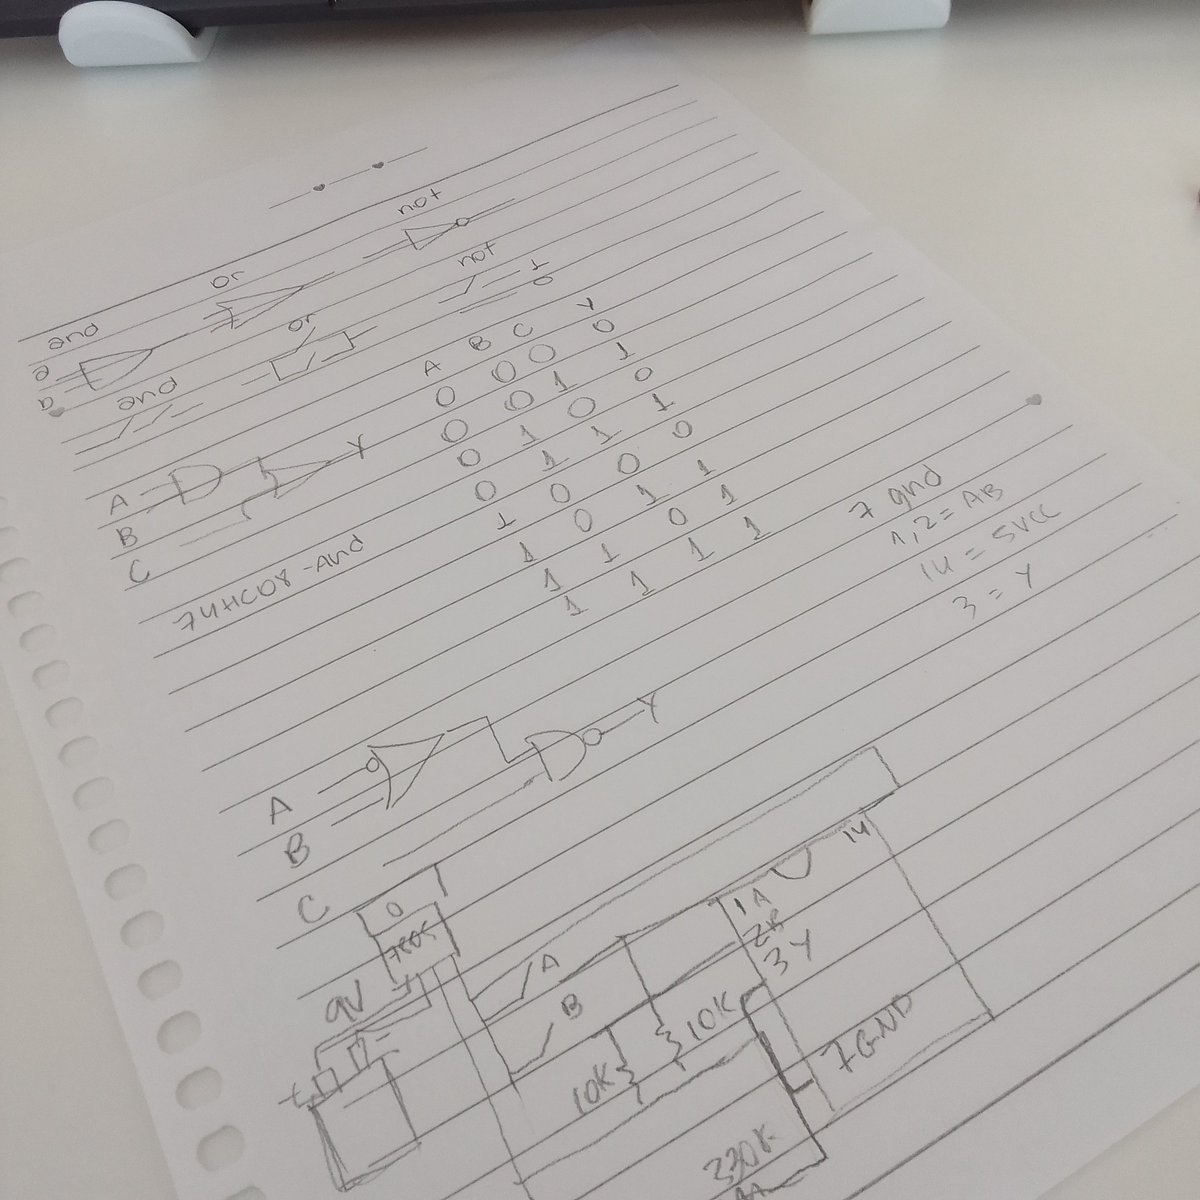 and or not
a
b
and or not
1
0
A B C Y
0 0 0 0
0 0 1 1
0 1 0 0
0 1 1 1
1 0 0 0
1 0 1 1
1 1 0 1
1 1 1 1
A
B
C
Y
74HC08-And
7 gnd
1,2=AB
14=5VCC
3=Y
A
B
C
Y
0
7805
9V
+
-
A
B
10K
10K
1A
2B
3Y
14
7GND
330K